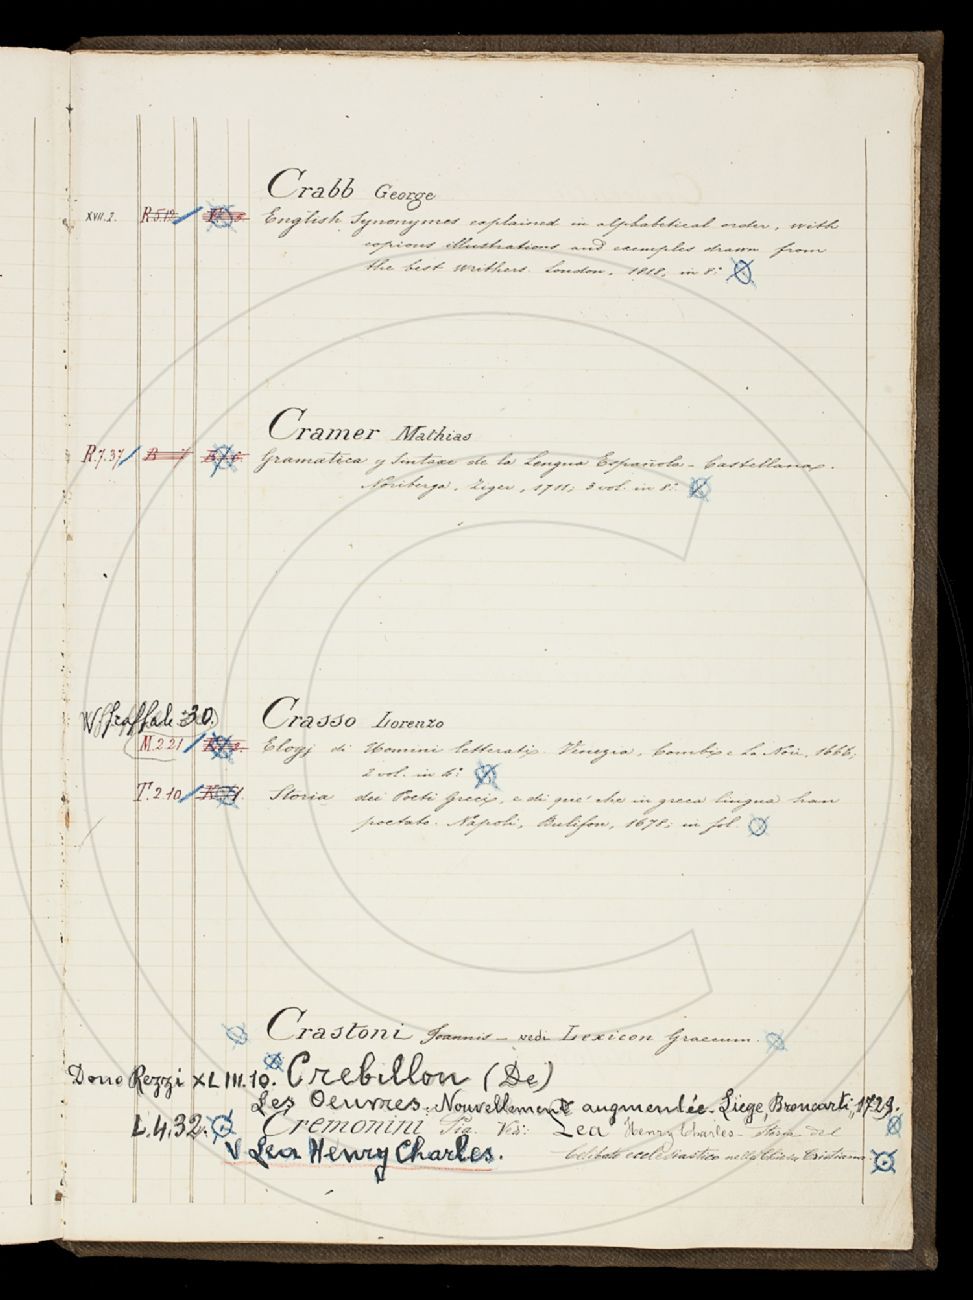 Crabb George
XVII.2. R.5.19
English Synonymes explained in alphabetical order, with
copious illustrations and exemples drawn from
the best writhers. London, 1818, in 8°
Cramer Mathias
R.7.37
Gramatica y Sintaxe de la Lengua Española-Castellana.
Noriberga, 1711, 3 vol. in 8°
30. Crasso Lorenzo
M.2.21 Elogj di Uomini letterati. Venezia, Combi e La Noù, 1666,
2 vol. in
T.2.10 Storia dei Poeti Greci, e di que' che in greca lingua han
poetato. Napoli, Bulifon, 1678, in fol.
Crastoni Joannis - vedi Lexicon Graecum.
Dono Rezzi XLIII.10. Crebillon (De)
Les Oeuvres. Nouvellement augmentée. Liege, Broncart, 1729.
L.4.32. Cremonini Pia. Vedi: Lea Henry Charles - Storia del
V Lea Henry Charles. celibato ecclesiastico nella Chiesa Cristiana